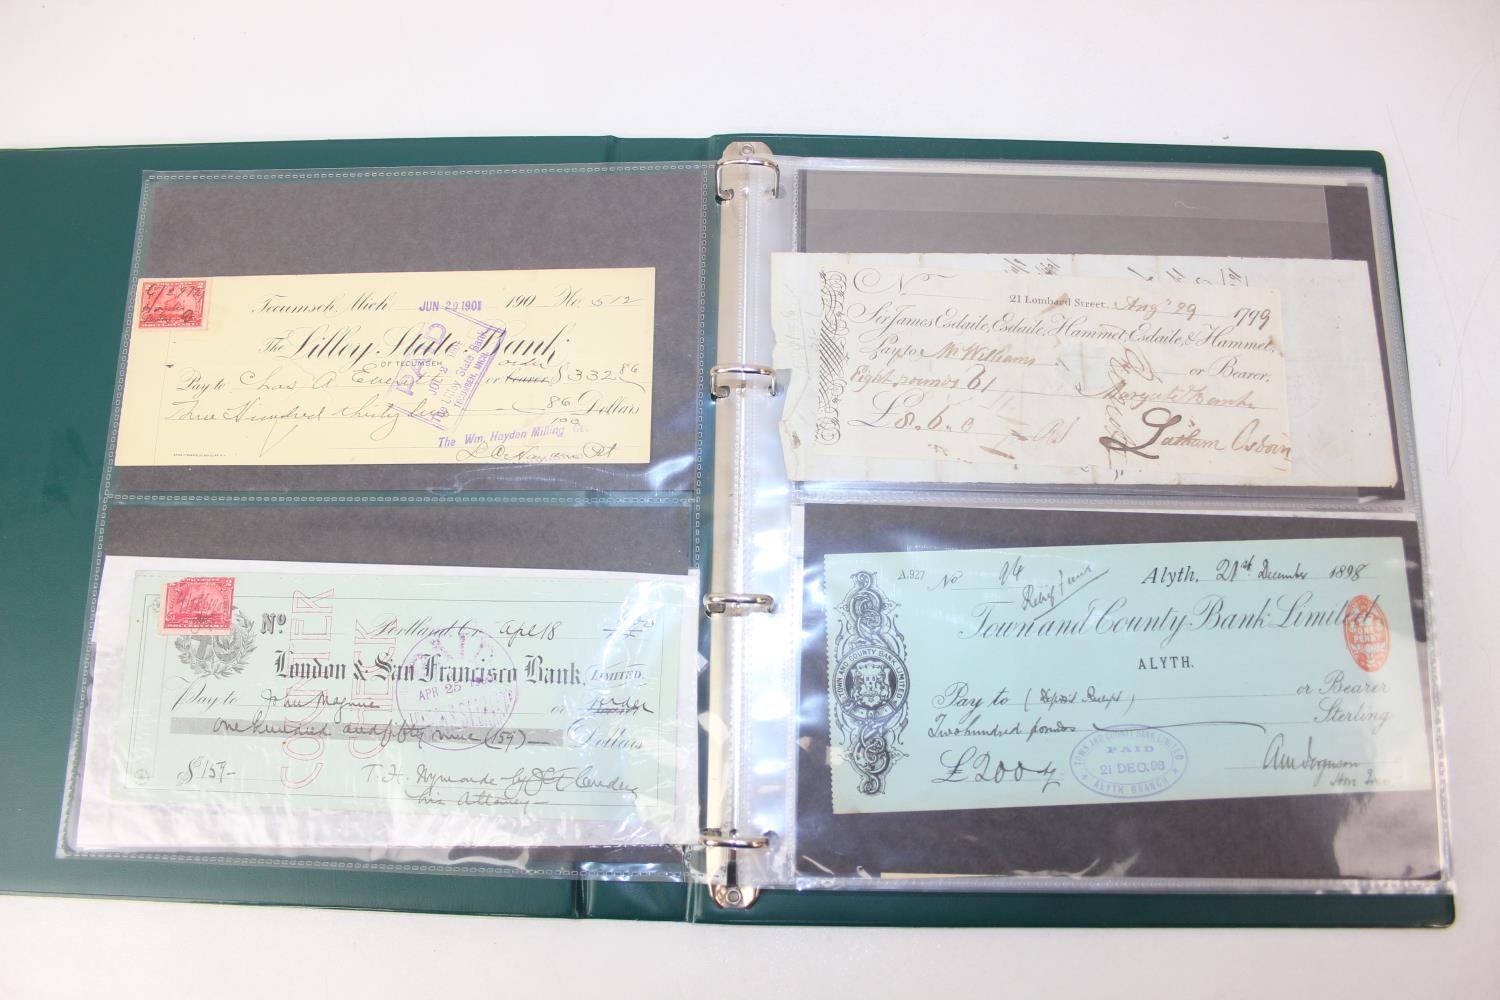 Tecumseh, Mich JUN 29 1901 190 No. 512
The Lilley State Bank
OF TECUMSEH.
Pay to Chas A Everett or order bearer $332 86
Three Hundred thirty two 86 Dollars
100
PAID
JUL 2 1901
The Lilley State Bank
TECUMSEH, MICH.
The Wm. Hayden Milling Co.
No. Portland, O. Apl 18
London & San Francisco Bank, LIMITED.
Pay to John Maginnie or order
one hundred and fifty nine (159) Dollars
$159-
COUNTER CHECK
PAID
APR 25
his Attorney
No
21 Lombard Street, Augt 29 1799
Sir James Esdaile, Esdaile, Hammet, Esdaile, & Hammet,
Pay to Mr Williams or Bearer,
Eight pounds 6/
£8.6.0
Latham Osborn
A.927 No 94 Alyth, 21st December 1898
Relief Fund
Town and County Bank Limited
ALYTH.
ONE PENNY
Pay to (Deposit Receipt) or Bearer
Two hundred pounds Sterling
£200
TOWN AND COUNTY BANK LIMITED
PAID
21 DEC. 98
ALYTH BRANCH
TOWN AND COUNTY BANK LIMITED